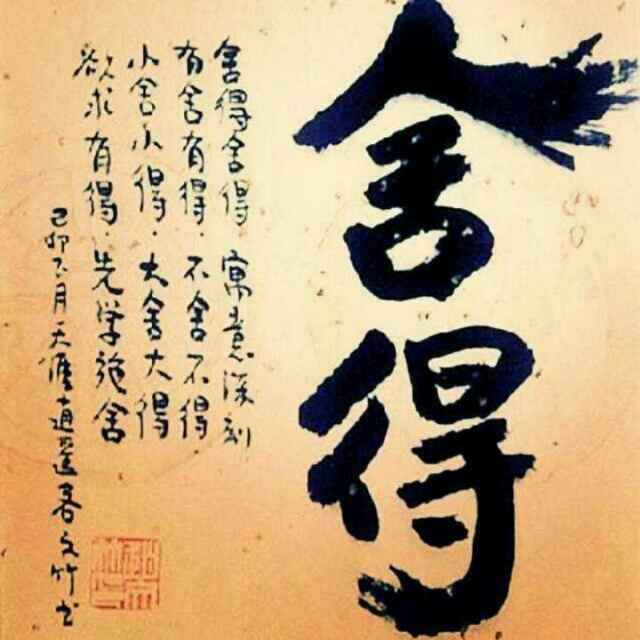 舍得
舍得舍得寓意深刻
有舍有得·不舍不得
小舍小得·大舍大得
欲求有得·先学施舍
己卯六月天涯逍遥客文竹书